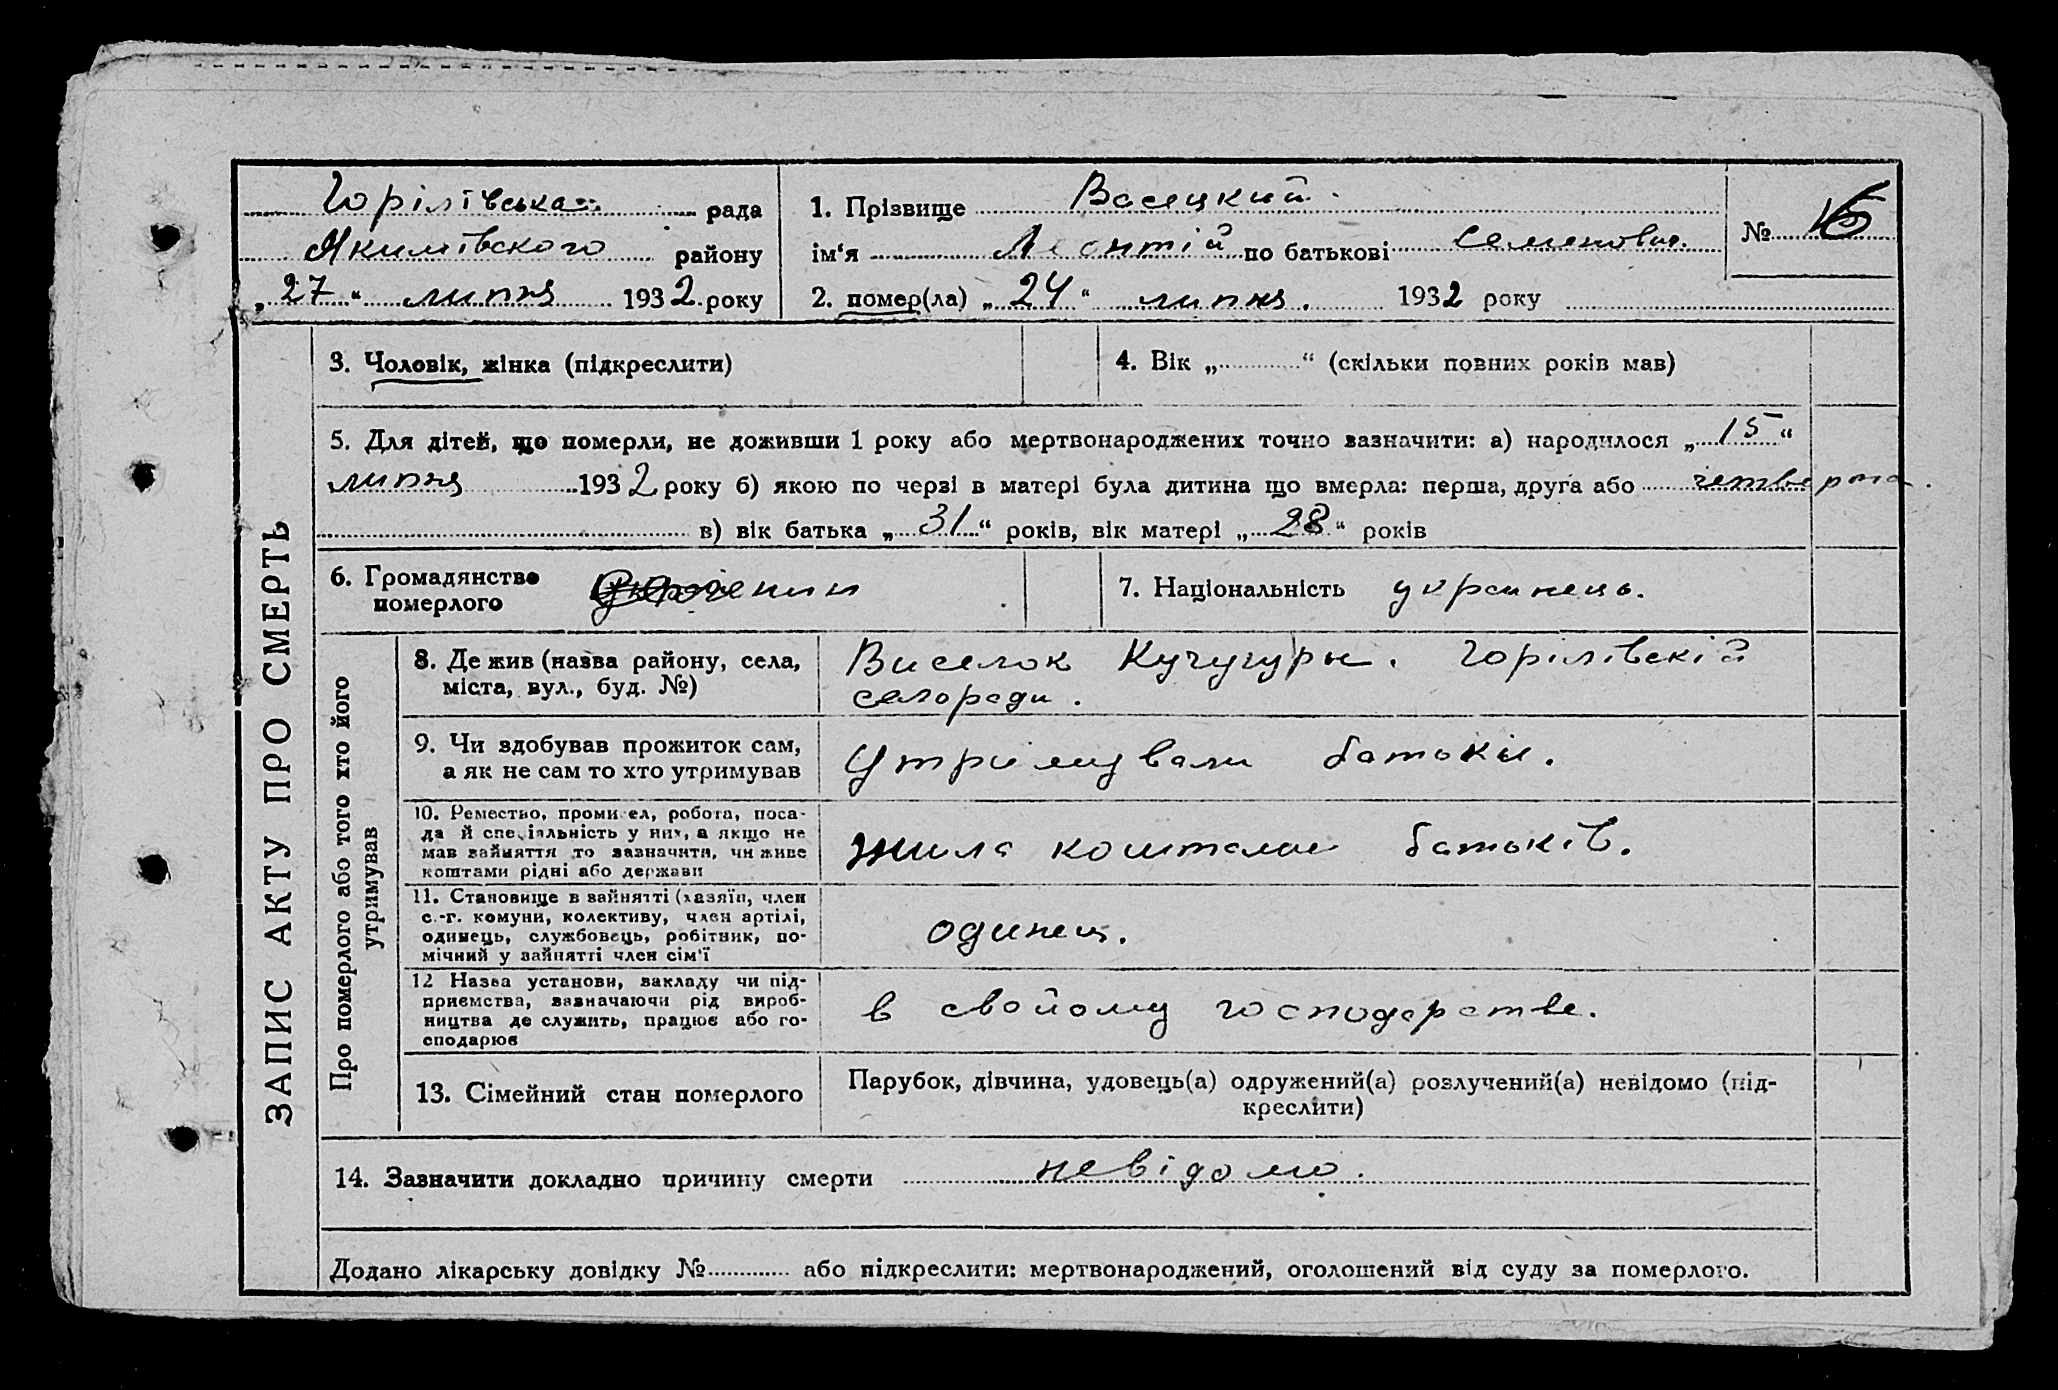 Горілівська рада
Якимівского району
„27“ липня 1932 року
1. Прізвище Васецкий
ім‘я Леонтій по батькові Семенович.
2. помер(ла) „24“ липня. 1932 року
№
ЗАПИС АКТУ ПРО СМЕРТЬ
3. Чоловік, жінка (підкреслити)
4. Вік „ “ (скільки повних років мав)
5. Для дітей, що померли, не доживши 1 року або мертвонароджених точно зазначити: а) народилося „15“
липня 1932 року б) якою по черзі в матері була дитина що вмерла: перша, друга або четверта.
в) вік батька „31“ років, вік матері „28“ років
6. Громадянство
померлого
7. Національність украинець.
Про померлого або того хто його
утримував
8. Де жив (назва району, села,
міста, вул., буд. №)
Виселок Кучугуры. Горілівскій
селоради.
9. Чи здобував прожиток сам,
а як не сам то хто утримував
Утрімували батьки.
10. Ремество, промисел, робота, поса-
да й спеціяльність у них, а якщо не
мав зайняття то зазначити, чи живе
коштами рідні або держави
жила коштами батьків.
11. Становище в зайнятті (хазяїн, член
с.-г. комуни, колективу, член артілі,
одинець, службовець, робітник, по-
мічний у зайнятті член сім'ї
одинец.
12 Назва установи, закладу чи під-
приємства, зазначаючи рід вироб-
ництва де служить, працює або го-
сподарює
в свойому господарстве.
13. Сімейний стан померлого
Парубок, дівчина, удовець(а) одружений(а) розлучений(а) невідомо (під-
креслити)
14. Зазначити докладно причину смерти невідомо.
Додано лікарську довідку № або підкреслити: мертвонароджений, оголошений від суду за померлого.